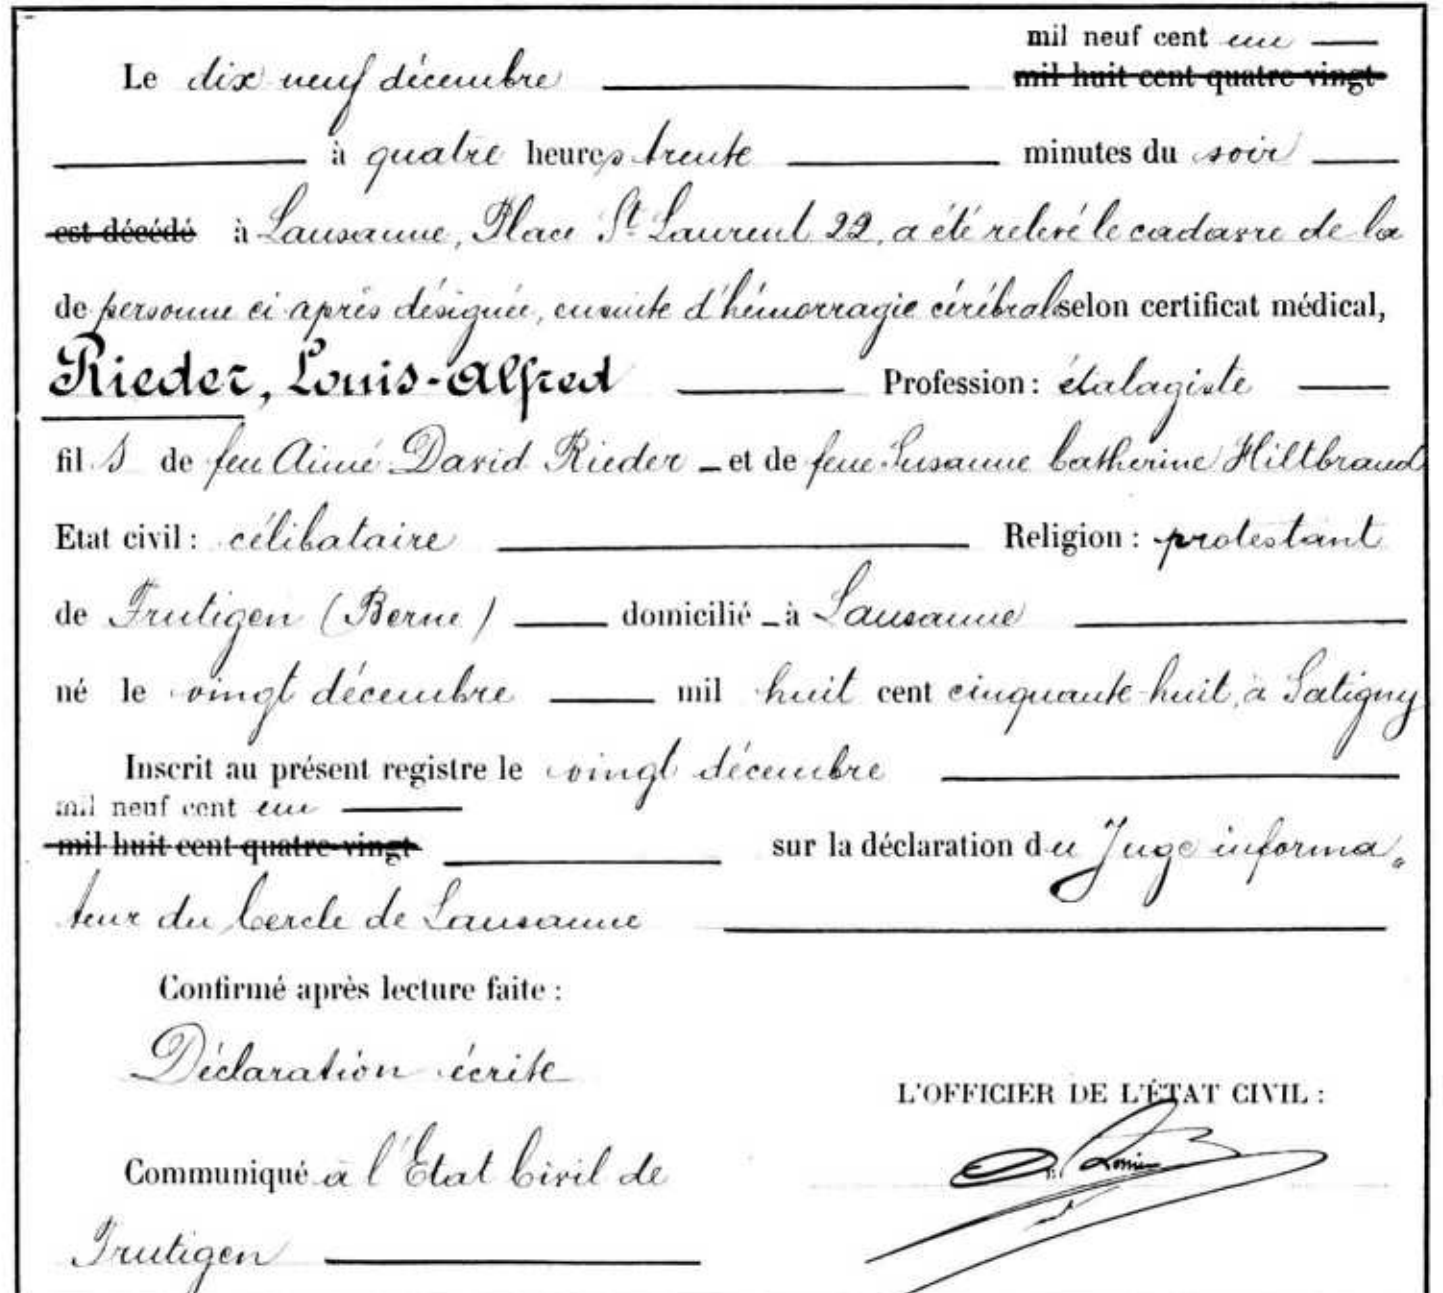 mil neuf cent un
Le dix neuf décembre mil huit cent quatre-vingt
à quatre heures trente minutes du soir
est décédé à Lausanne, Place St. Laurent 22, a été relevé le cadavre de la
de personne ci après désignée, ensuite d'hémorragie cérébral selon certificat médical,
Rieder, Louis-Alfred Profession : étalagiste
fil s de feu Aimé David Rieder – et de feue Susanne Catherine Hiltbrand
Etat civil : célibataire Religion : protestant
de Frutigen (Berne) domicilié – à Lausanne
né le vingt décembre mil huit cent cinquante-huit, à Satigny
Inscrit au présent registre le vingt décembre
mil neuf cent un
mil huit cent quatre-vingt sur la déclaration du Juge informa„
teur du Cercle de Lausanne
Confirmé après lecture faite :
Déclaration écrite
L'OFFICIER DE L'ÉTAT CIVIL :
Communiqué à l'Etat Civil de
Frutigen